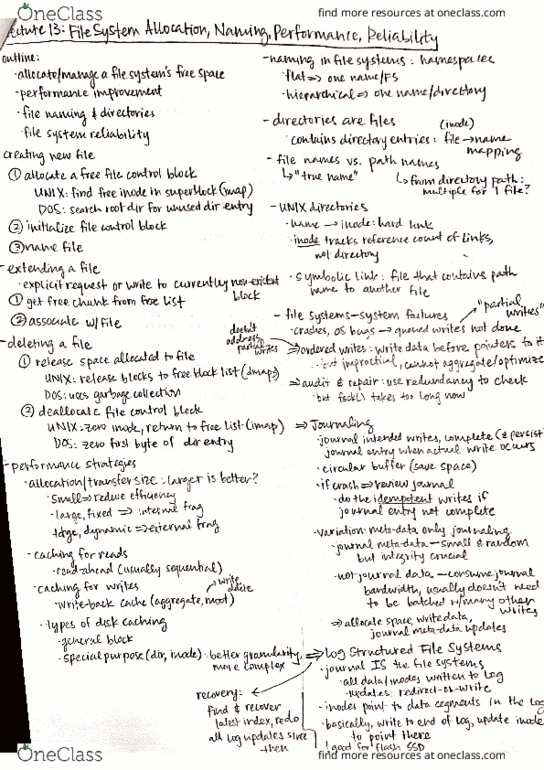 OneClass
find more resources at oneclass.com
find more resources at oneclass.com
Lecture 13: File System Allocation, Naming, Performance, Reliability
outline:
· allocate/manage a file system's free space
· performance improvement
· file naming & directories
· file system reliability
creating new file
① allocate a free file control block
UNIX: find free inode in superblock (imap)
DOS: search root dir for unused dir entry
② initialize file control block
③ name file
- extending a file
· explicit request or write to currently non-existent block
① get free chunk from free list
② associate w/file
- deleting a file
① release space allocated to file
UNIX: release blocks to free block list (dmap)
DOS: uses garbage collection
② deallocate file control block
UNIX: zero inode, return to free list (imap)
DOS: zero first byte of dir entry
- performance strategies
· allocation/transfer size: larger is better?
· small ⇒ reduce efficiency
· large, fixed ⇒ internal frag
large, dynamic ⇒ external frag
- caching for reads
· read-ahead (usually sequential)
· caching for writes
· write-back cache (aggregate, moot)
· types of disk caching
· general block
· special purpose (dir, inode): better granularity, more complex
- naming in file systems: namespaces
· flat ⇒ one name/FS
· hierarchical ⇒ one name/directory
- directories are files
(inode)
· contains directory entries: file → name
mapping
- file names vs. path names
↳ "true name"
↳ from directory path:
multiple for 1 file?
- UNIX directories
· name → inode: hard link
· inode tracks reference count of links,
not directory
· symbolic link: file that contains path
name to another file
- file systems - system failures
"partial writes"
· crashes, OS bugs → queued writes not done
doesn't
address
partial
writes
⇒ ordered writes: write data before pointers to it
· but impractical, cannot aggregate/optimize
⇒ audit & repair: use redundancy to check
· but fsck() takes too long now
⇒ Journaling
· journal intended writes, complete (& persist)
journal entry when actual write occurs
· circular buffer (save space)
· if crash ⇒ review journal
· do the idempotent writes if
journal entry not complete
· variation: meta-data only journaling
· journal meta-data - small & random
but integrity crucial
· not journal data - consume journal
bandwidth, usually doesn't need
to be batched w/many other
writes
⇒ allocate space, write data,
journal meta-data updates
⇒ Log Structured File Systems
· journal IS the file systems
· all data/inodes written to log
· updates: redirect-on-write
· inodes point to data segments in the log
· basically, write to end of log, update inode
to point there
! good for flash SSD
recovery:
find & recover
latest index, redo
all log updates since
then
OneClass
find more resources at oneclass.com
find more resources at oneclass.com